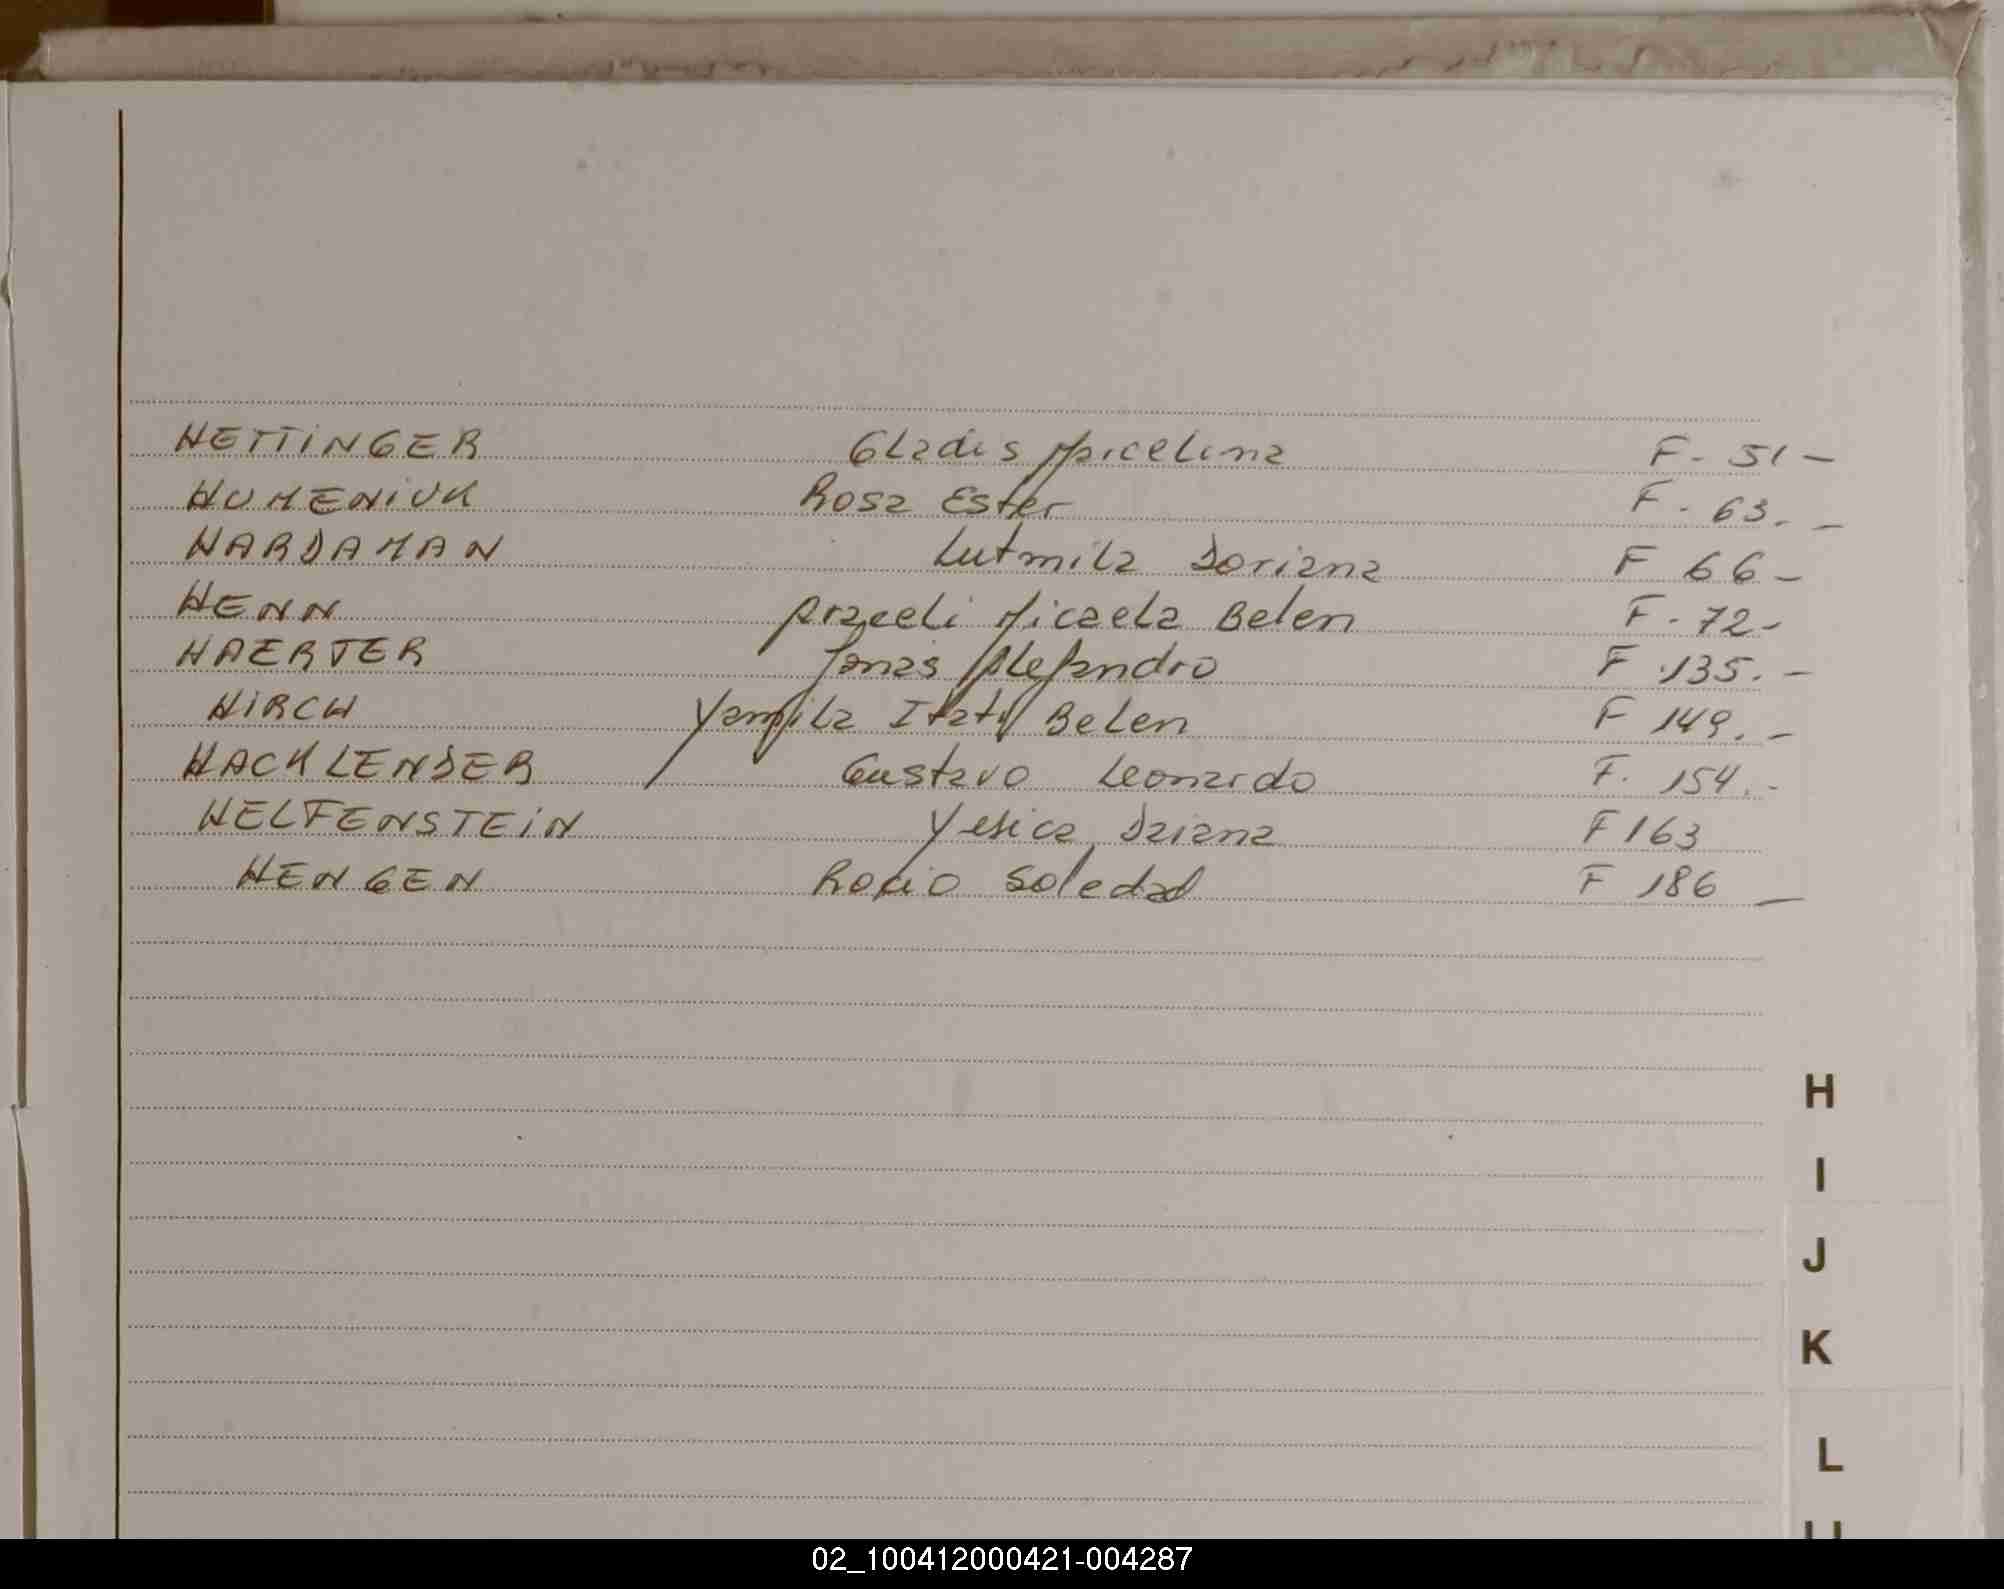 HETTINGER Gladis Maricelina F. 51 -
HUMENIUK Rosa Ester F. 63. -
HARDAMAN Lutmila Doriana F 66 -
HENN Araceli Micaela Belen F. 72 -
HAERTER Jonas Alejandro F 135. -
HIRCH Yamila Itati Belen F 149. -
HACKLENDER Gustavo Leonardo F. 154. -
HELFENSTEIN Yesica Daiana F 163
HENGEN Rocio Soledad F 186 -
H
I
J
K
L
02_100412000421-004287